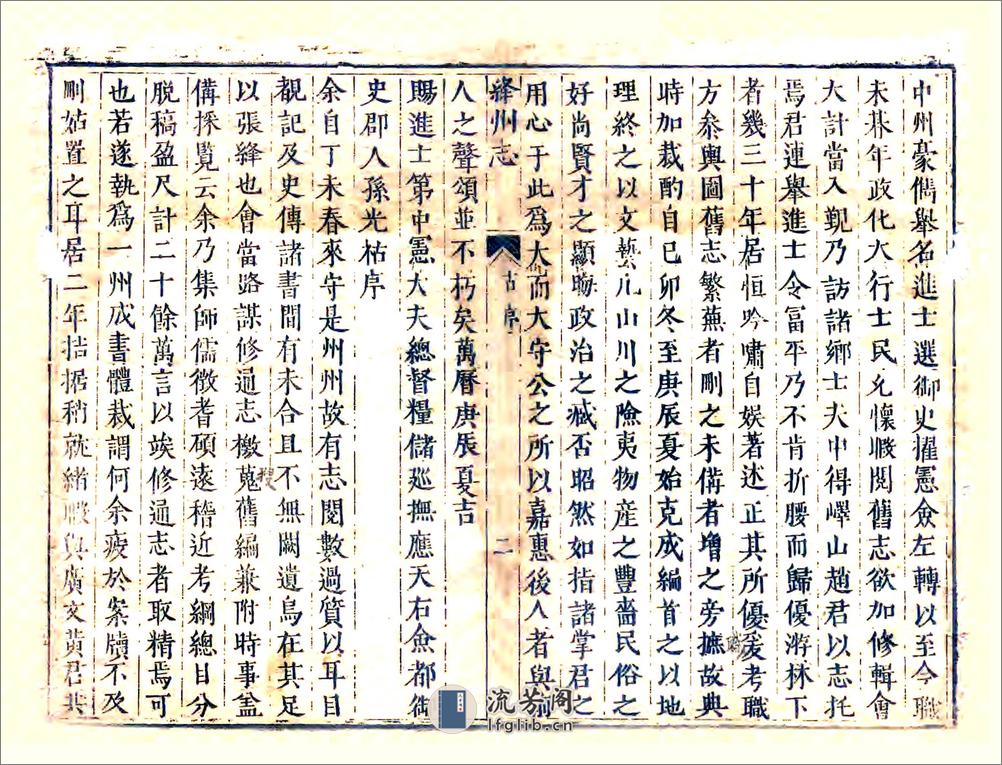 中州豪儁舉名進士選御史擢憲僉左轉以至今職
未朞年政化大行士民允懷暇閱舊志欲加修輯會
大計當入覲乃訪諸鄉士夫中得嶧山趙君以志托
焉君連舉進士令富平乃不肯折腰而歸優游林下
者幾三十年居恒吟嘯自娛著述正其所優爰考職
方叅輿圖舊志繁蕪者刪之未偹者增之旁摭故典
時加裁酌自己卯冬至庚辰夏始克成編首之以地
理終之以文藝凡山川之險夷物產之豐嗇民俗之
好尚賢才之顯晦政治之臧否昭然如指諸掌君之
用心于此為大而大守公之所以嘉惠後人者與前
絳州志 古序 二
人之聲頌並不朽矣萬曆庚辰夏吉
賜進士第中憲大夫總督糧儲廵撫應天右僉都御
史郡人孫光祜序
余自丁未春來守是州州故有志閱數過質以耳目
覩記及史傳諸書間有未合且不無闕遺烏在其足
以張絳也會當路謀修通志檄蒐舊編兼附時事盖
偹採覽云余乃集師儒徵耆碩遠稽近考綱總目分
脫稿盈尺計二十餘萬言以竢修通志者取精焉可
也若遂執為一州成書體裁謂何余疲於案牘不及
刪姑置之耳居二年拮据稍就緒暇與廣文黃君共
流芳阁
lfglib.cn